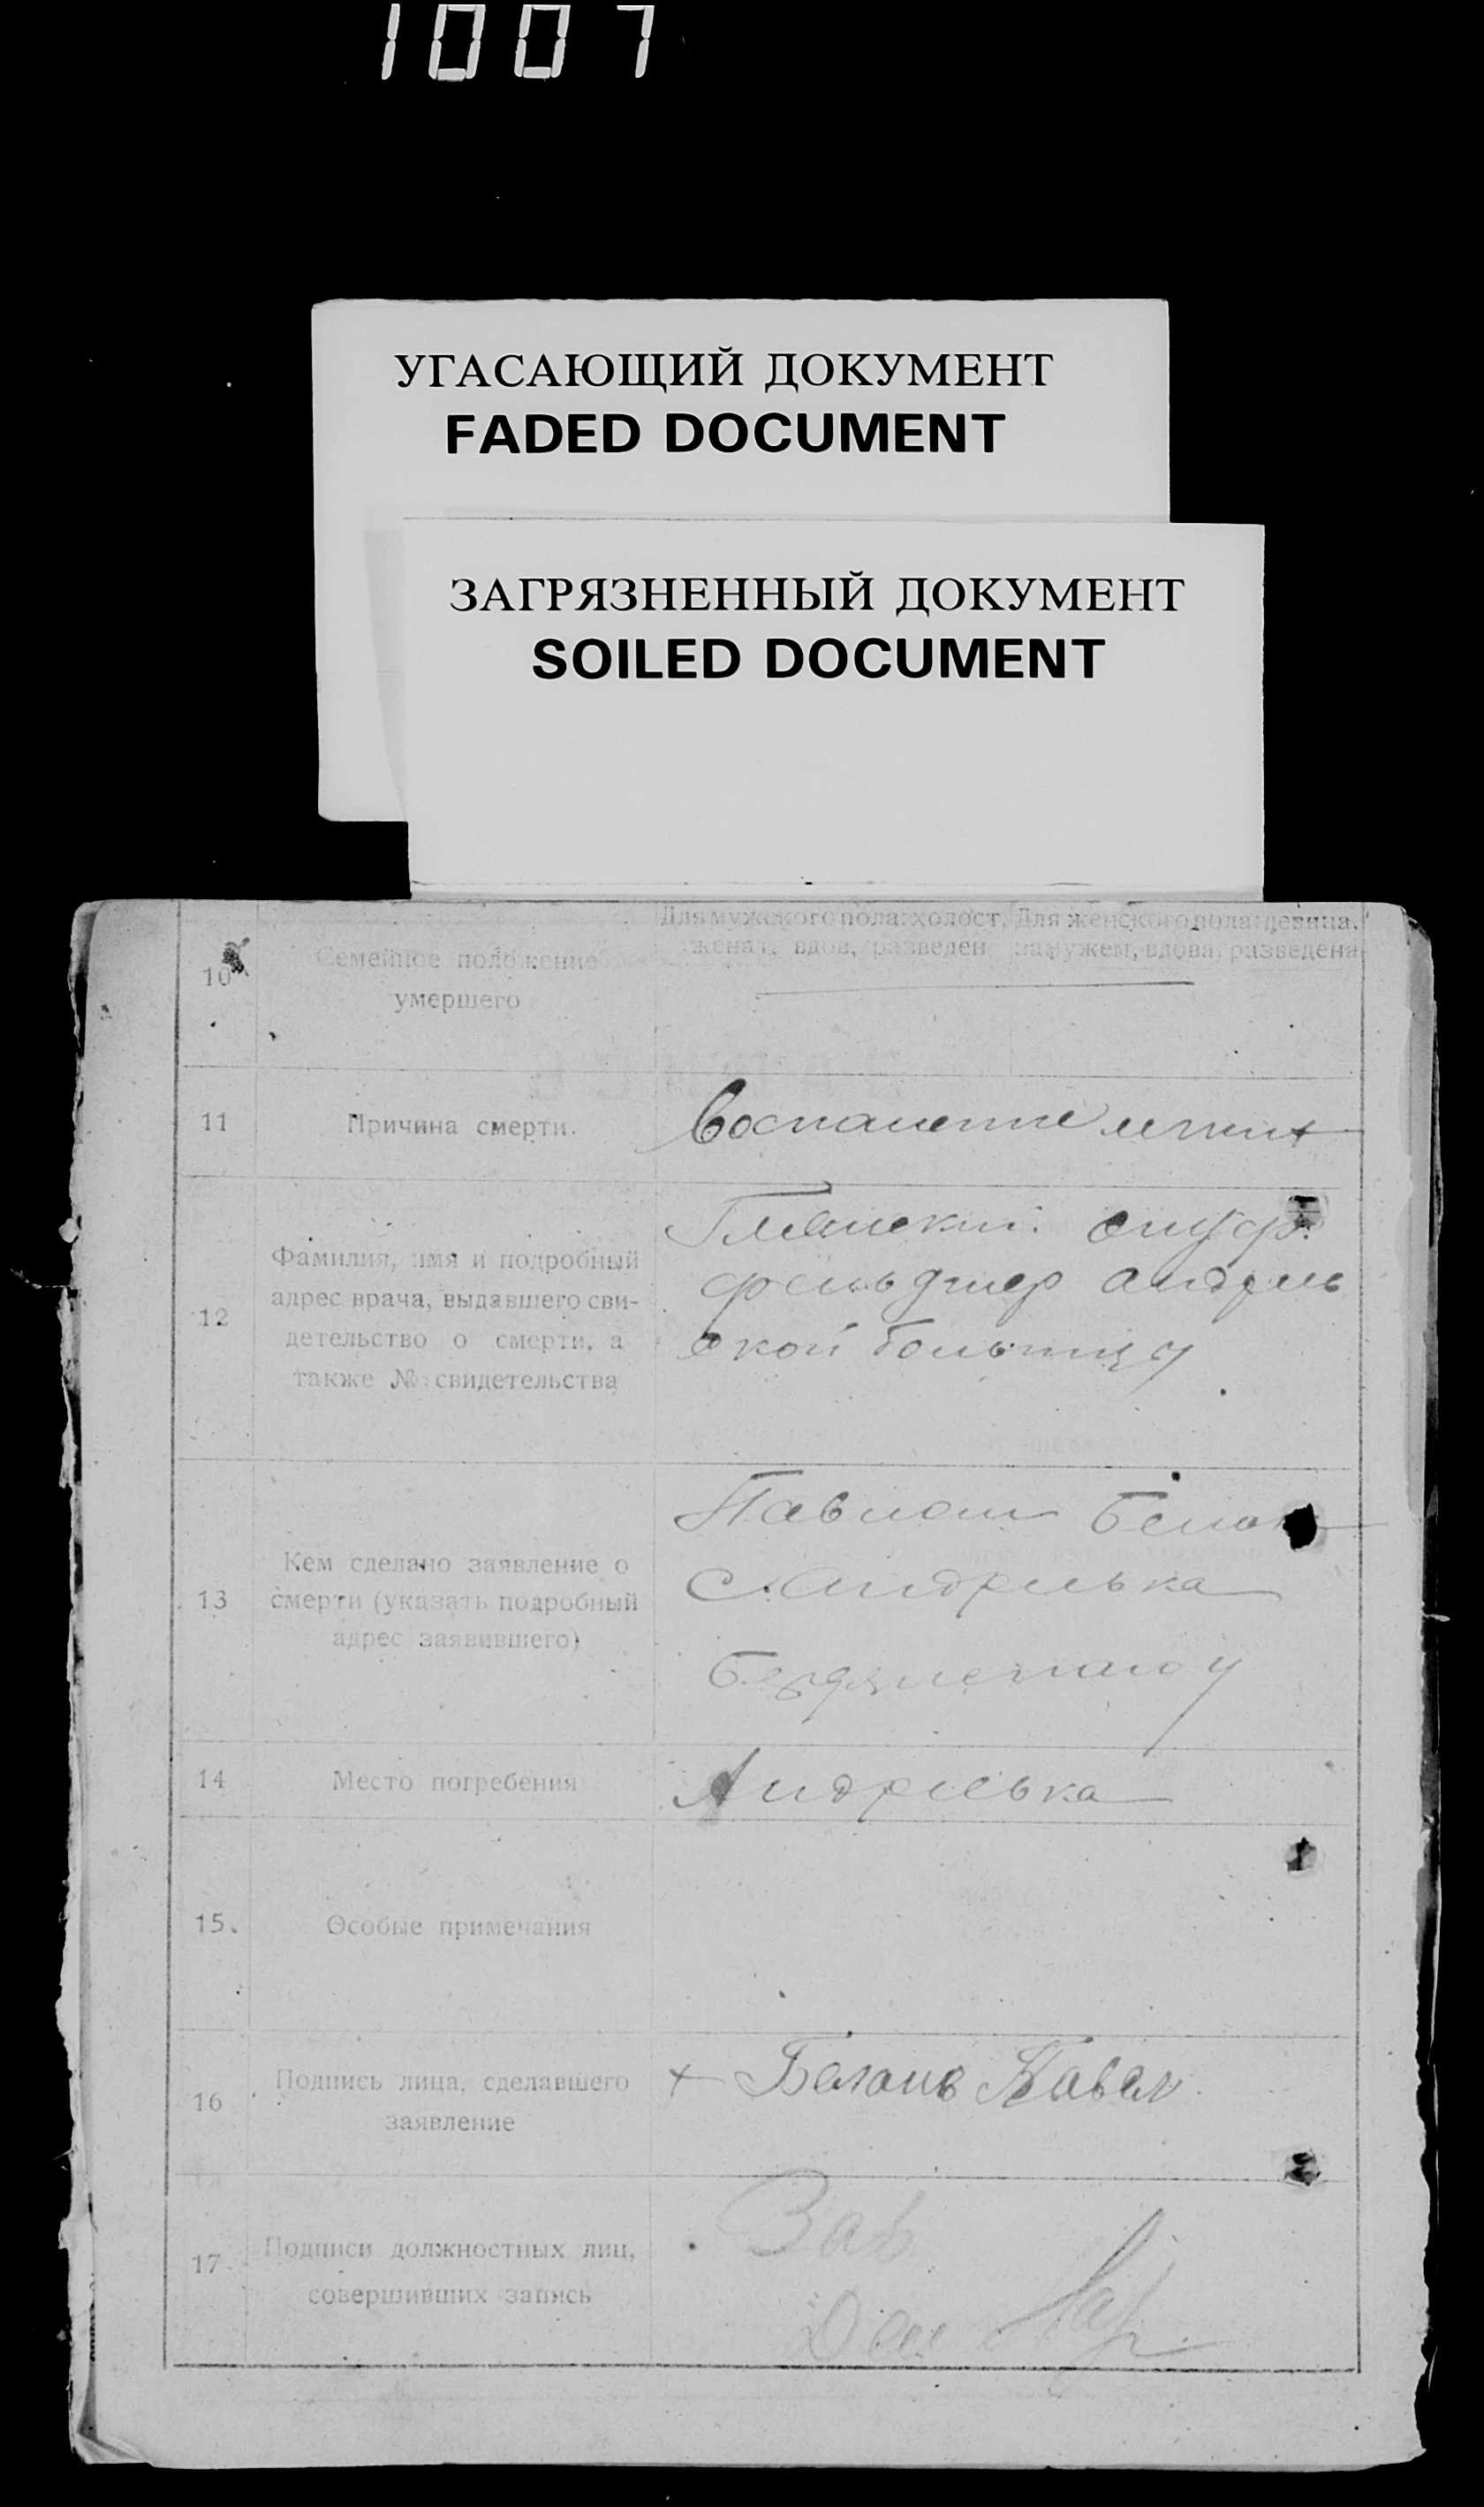 1007
УГАСАЮЩИЙ ДОКУМЕНТ
FADED DOCUMENT
ЗАГРЯЗНЕННЫЙ ДОКУМЕНТ
SOILED DOCUMENT
10
Семейное положение
умершего
Для мужского пола: холост,
женат, вдов, разведен
Для женского пола: девица,
замужем, вдова, разведена
11
Причина смерти.
Воспаление легких
12
Фамилия, имя и подробный
адрес врача, выдавшего сви-
детельство о смерти, а
также № свидетельства
фельдшер Андрев
ской больницу
13
Кем сделано заявление о
смерти (указать подробный
адрес заявившего)
Павлом
с. Андревка
14
Место погребения
Андревка
15.
Особые примечания
16
Подпись лица, сделавшего
заявление
+ Белоив Павел
17
Подписи должностных лиц,
совершивших запись
Зав
Дел